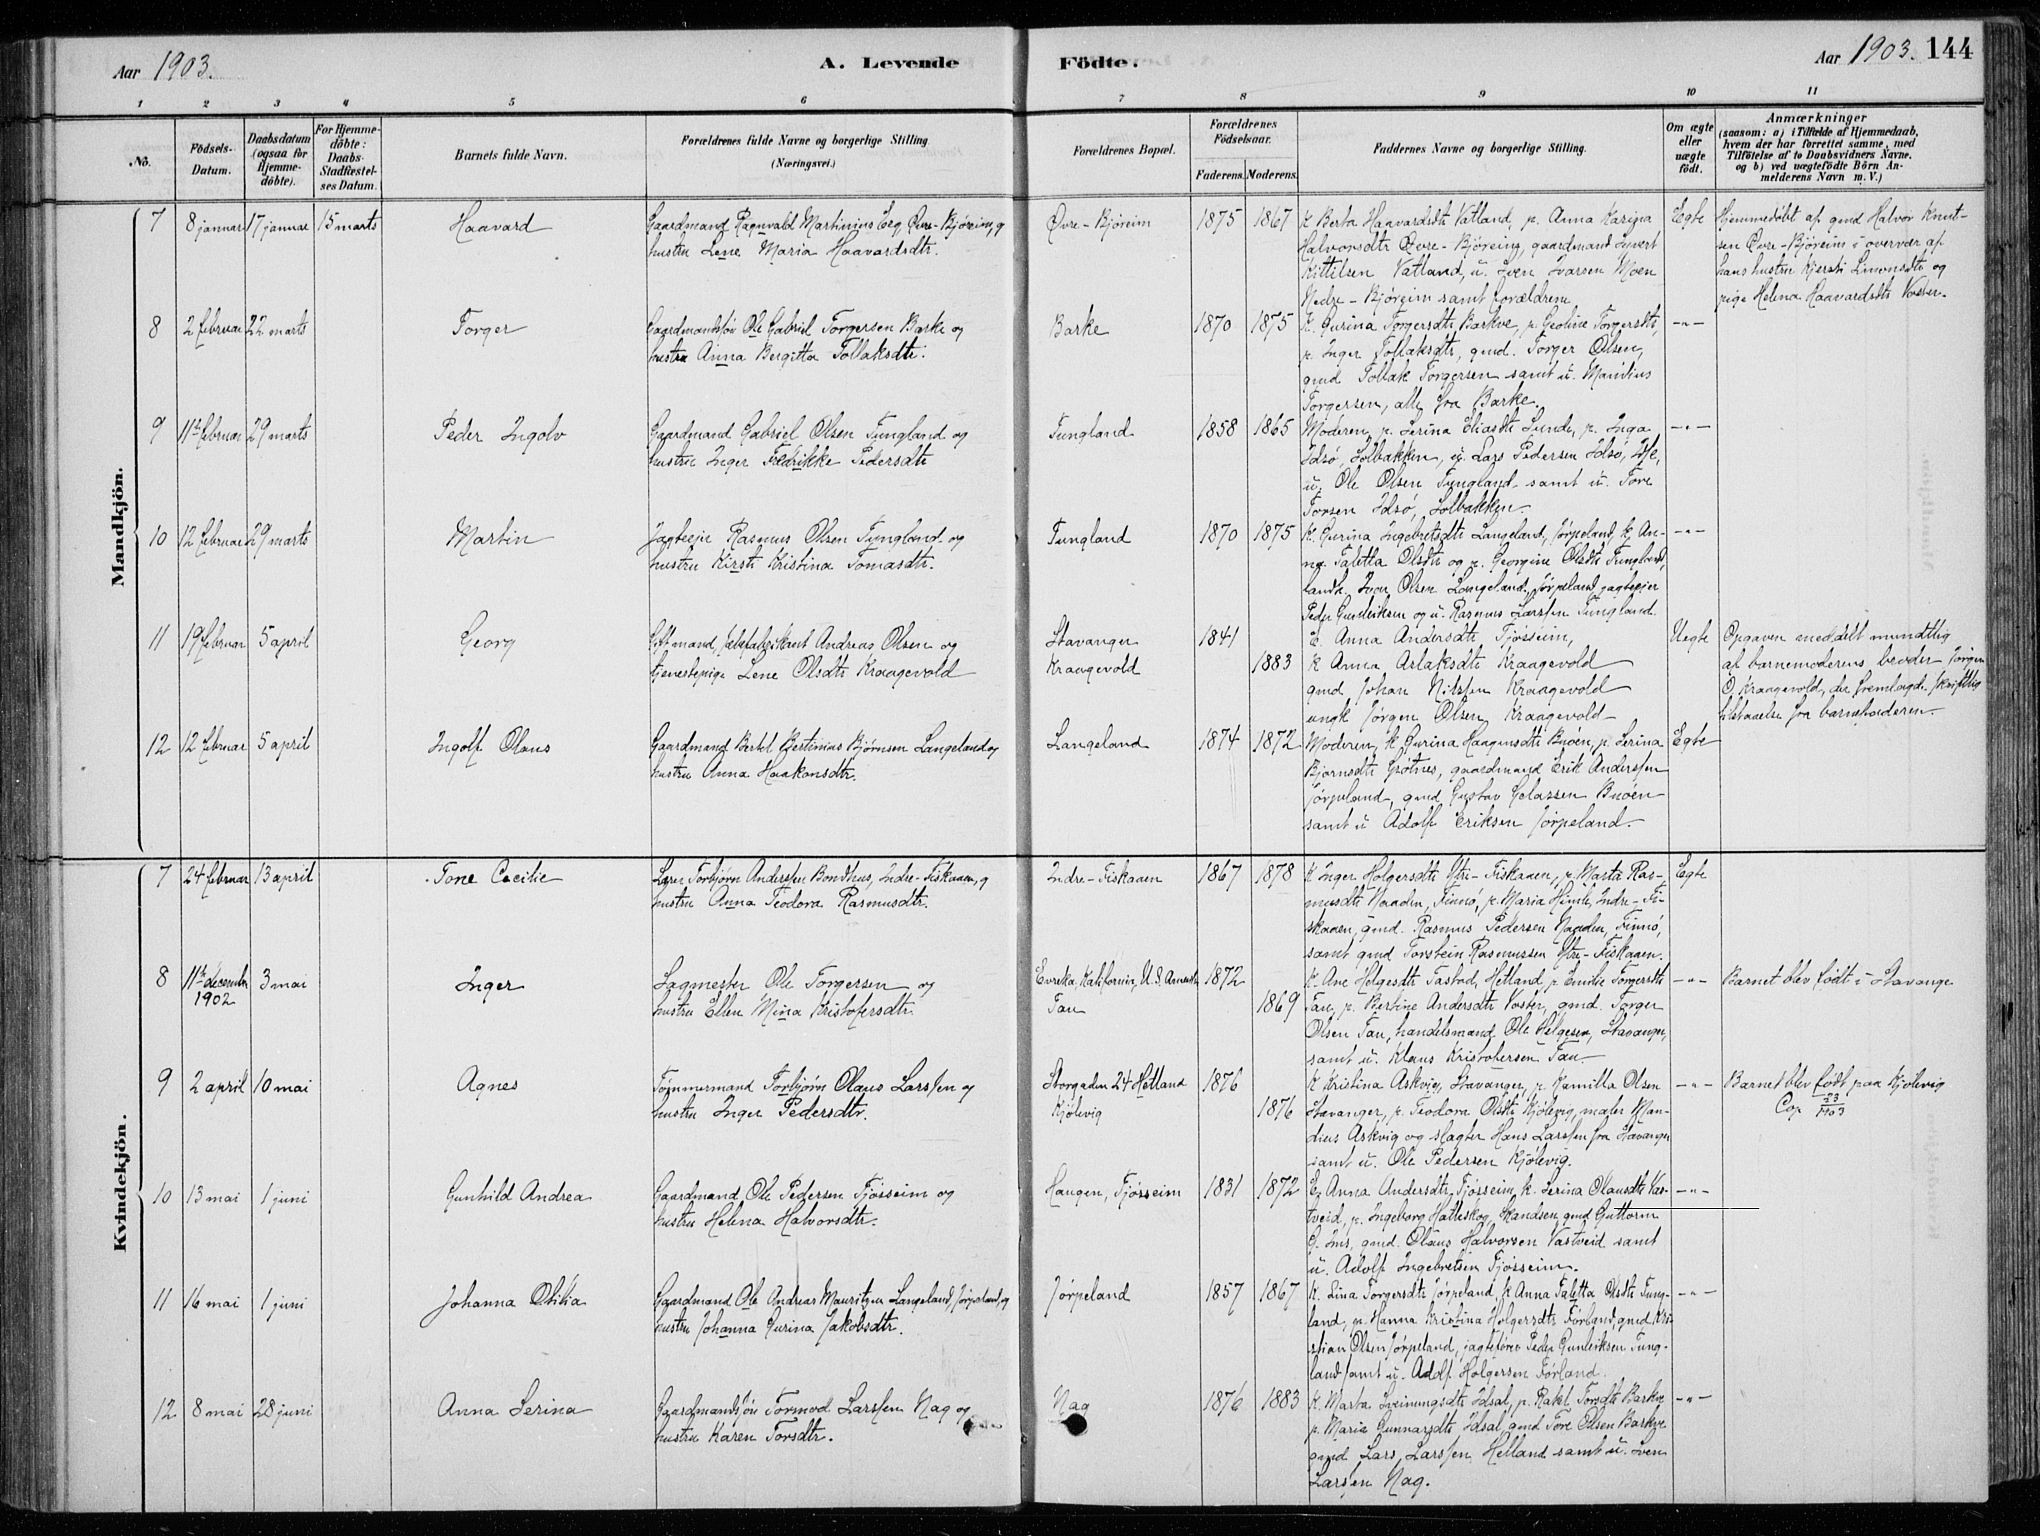 Aar 1903.
A. Levende Födte.
Aar 1903. 144
1 2 3 4 5 6 7 8 9 10 11
No.
Födsels-
Datum.
Daabsdatum
(ogsaa for
Hjemme-
döbte).
For Hjemme-
döbte:
Daabs-
Stadfæstel-
ses Datum.
Barnets fulde Navn.
Forældrenes fulde Navne og borgerlige Stilling
(Næringsvei.)
Forældrenes Bopæl.
Forældrenes
Födselsaar.
Faderens. Moderens.
Faddernes Navne og borgerlige Stilling.
Om ægte
eller
uægte
födt.
Anmærkninger
(saasom: a) i Tilfælde af Hjemmedaab,
hvem der har forrettet samme, med
Tilföielse af to Daabsvidners Navne.
og b) ved uægtefödte Börn An-
melderens Navn m. V.)
Mandkjön.
7 8 januar 17 januar 15 marts Haavard
Gaardmand Ragnvald Martinius Eeg Øvre-Björeim, og
hustru Lene Maria Haavardsdtr.
Øvre-Björeim 1875 1867
K Berta Haavardsdtr Vatland, p. Anna Karina
Halvorsdtr Øvre-Björeim, gaardmand Sivert
Kittilsen Vatland, u. Sven Ivarsen Moen
Nedre-Björeim samt forældrene
Egte
Hjemmedöbt af gmd Halvor Knut-
sen Øvre-Björeim i overvær af
hans hustru Kjersti Simonsdtr og
pige Helena Haavardsdtr Voster.
8 2 februar 22 marts Torger
Gaardmandssön Ole Gabriel Torgersen Barke og
hustru Anna Bergitta Tollaksdtr.
Barke 1870 1875
K. Gurina Torgersdtr Barkve, p. Geoline Torgersdtr,
p. Inger Tollaksdtr, gmd. Torger Olsen,
gmd Tollak Torgersen samt u. Mandius
Torgersen, alle fra Barke.
-"-
9 11te februar 29 marts Peder Ingolv
Gaardmand Gabriel Olsen Tungland og
hustru Inger Fredrikke Pedersdtr
Tungland 1858 1865
Moderen, p. Serina Eliasdtr Lunde, p. Inga
Idsø, Solbakken, u. Lars Pedersen Idsø,
u. Ole Olsen Tungland samt u. Tore
Torsen Idsø, Solbakken
-"-
10 12 februar 29 marts Martin
Jagteeier Rasmus Olsen Tungland og
hustru Kirsti Kristina Tomasdtr.
Tungland 1870 1875
K. Gurina Ingebretsdtr Langeland, Jörpeland, k. An-
na Taletta Olsdtr og p. Georgine Olsdtr Tungland,
Ivar Olsen Langeland, Jörpeland, jagteeier
Peder Gunleiksen og u. Rasmus Larssen Tungland.
-"-
11 19 februar 5 april Georg
Gift mand, Andreas Olsen og
tjenestepige Lene Olsdtr Kraagevold
Stavanger 1841
Kraagevold 1883
E. Anna Andersdtr Tjösseim,
K Anna Aslaksdtr Kraagevold
gmd Johan Nilssen Kraagevold
ungk Jörgen Olsen Kraagevold
Uegte
Opgaven meddelt mundtlig
af barnemoderens broder Jörgen
O. Kraagevold, der fremlagde skriftlig
tilstaaelse fra barnefaderen.
12 12 februar 5 april Ingolf Olaus
Gaardmand Bertel Bertinius Bjørnsen Langeland og
hustru Anna Haakonsdtr.
Langeland 1874 1872
Moderen, k. Gurina Haagensdtr Buöen, p. Serina
Bjørnsdtr Grötnes, gaardmand Erik Anderssen
Jörpeland, gmd Gustav Buöen
samt u Adolf Eriksen Jörpeland.
Egte
Kvindekjön.
7 24 februar 13 april Tone Cecilie
Lærer Torbjörn Anderssen Bondhus, Indre-Fiskaaen, og
hustru Anna Teodora Rasmusdtr.
Indre-Fiskaaen 1867 1878
K Inger Holgersdtr Ytre-Fiskaaen, p. Marta Ras-
musdtr Naaden, Finnö, p. Maria Himle, Indre-Fi-
skaaen, gmd. Rasmus Pedersen Naaden, Finnö,
samt gmd Torstein Rasmussen Ytre-Fiskaaen.
Egte
8 11te december 1902 3 mai Inger
Sagmester Ole Torgersen og
hustru Ellen Mina Kristofersdtr.
Evreka, Kalifornia, U.S. Amerika 1872
Tau 1869
K. Ane Helgesdtr Tastad, Hetland p Emilie Torgersdtr
Tau, p. Bertine Andersdtr Voster, gmd. Torger
Olsen Tau, handelsmand Ole Helgesen, Stavanger,
samt u. Klaus Kristofersen Tau
-"-
Barnet blev födt i Stavanger
9 2 april 10 mai Agnes
Tömmermand Torbjörn Olaus Larssen og
hustru Inger Pedersdtr.
Storgaden 24 Hetland 1876
Kjölevig 1876
K Kristina Askvig, Stavanger, p. Kamilla Olsen
Stavanger, p. Teodora Olsdtr Kjölevig, maler Man-
dius Askvig og slagter Hans Larssen fra Stavanger
samt u. Ole Pedersen Kjölevig.
-"-
Barnet blev födt paa Kjölevig
Cop. 23/1903
10 13 mai 1 juni Gunhild Andrea
Gaardmand Ole Pedersen Tjösseim og
hustru Helena Halvorsdtr.
Haugen, Tjösseim 1831 1872
E. Anna Andersdtr Tjösseim, k. Serina Olausdtr Vas-
tveid, p. Ingeborg Hatleskog, Skandsen, gmd Guttorm
G. gmd. Olaus Halvorsen Vastveid samt
u. Adolf Ingebretsen Tjösseim.
-"-
11 16 mai 1 juni Johanna Otilia
Gaardmand Ole Andreas Mauritzen Langeland, Jörpeland, og
hustru Johanna Gurina Jakobsdtr.
Jörpeland 1857 1867
K. Lina Torgersdtr Jörpeland, k Anna Taletta Olsdtr Tung-
land, p. Hanna Kristina Holgersdtr Förland, gmd Kri-
stian Olsen Jörpeland, jagtefører Peder Gunleiksen Tung-
land samt u. Adolf Holgersen Förland.
-"-
12 8 mai 28 juni Anna Serina
Gaardmandssön Tormod Larssen Nag og
hustru Karen Torsdtr.
Nag 1876 1883
K. Marta Sveinungsdtr Idsal, p. Rakel Torsdtr Barkve
p. Maria Gunnarsdtr Idsal gmd Tore Olsen Barkve
gmd Lars Larssen Helland samt u. Sven
Larssen Nag.
-"-